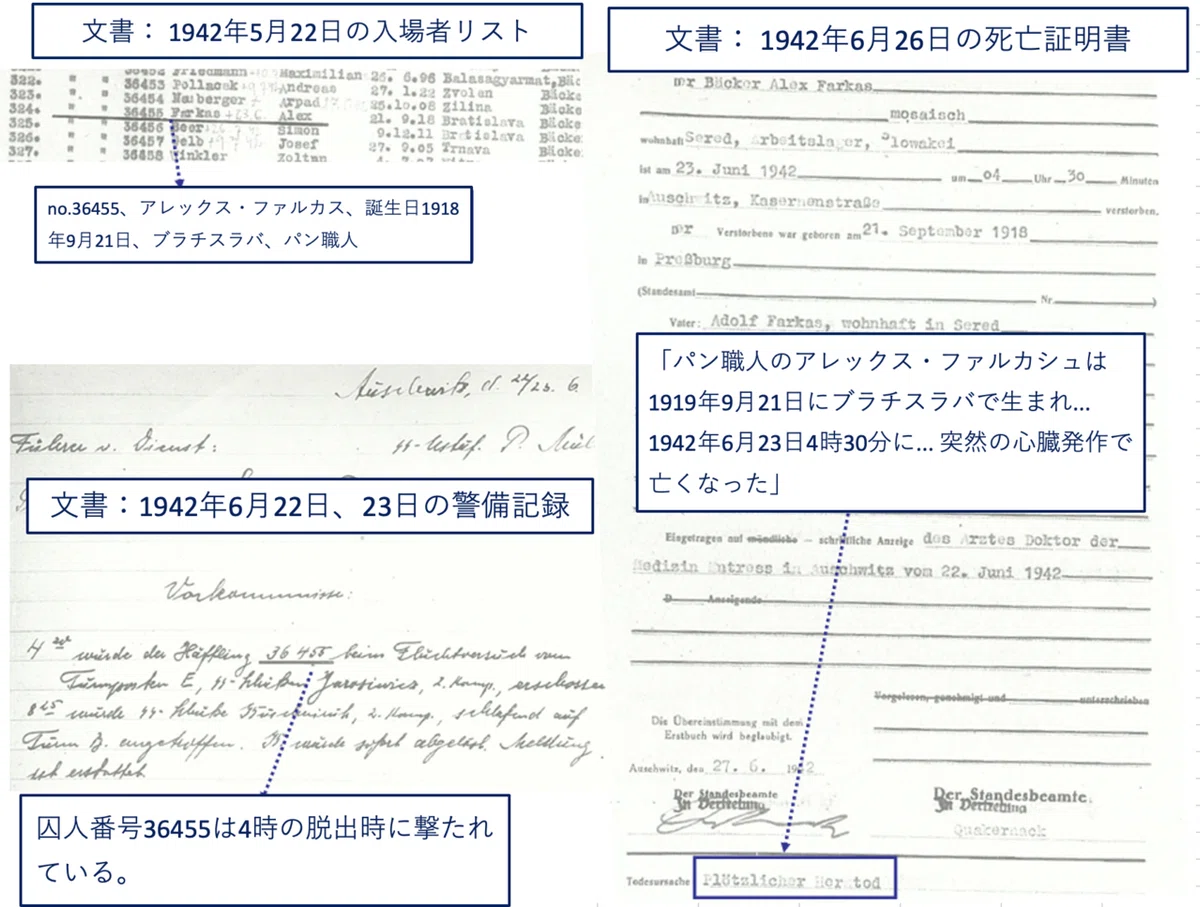 文書： 1942年5月22日の入場者リスト
322. " " 36452 Friedmann Maximilian 26. 6.96 Balasagyarmat,Bäc
323. " " 36453 Pollacek Andreas 27. 1.22 Zvolen Bäcke
324. " " 36454 Neuberger Arpad 25.10.08 Zilina Bäcke
325. " " 36455 Farkas Alex 21. 9.18 Bratislava Bäcke
326. " " 36456 Beer Simon 9.12.11 Bratislava Bäcke
327. " " 36457 Gelb Josef 27. 9.05 Trnava Bäcke
36458 Winkler Zoltan
no.36455、アレックス・ファルカス、誕生日1918
年9月21日、ブラチスラバ、パン職人
Auschwitz, d. 22/23. 6.
Führer v. Dienst: SS-Ustuf. P. Mül
文書：1942年6月22日、23日の警備記録
Vorkommnisse:
4 wurde der Häftling 36455 beim Fluchtversuch vom
Turmposten E, SS-Schützen Jarosiewicz, 2. Komp., erschossen
8 15 wurde SS-Schütze 2. Komp., schlafend auf
Turm B. angetroffen. wurde sofort abgelöst. Meldung
ist erstattet
囚人番号36455は4時の脱出時に撃たれ
ている。
文書： 1942年6月26日の死亡証明書
Der Bäcker Alex Farkas
mosaisch
wohnhaft Sered, Arbeitslager, Slowakei
ist am 23. Juni 1942 um 04 Uhr 30 Minuten
in Auschwitz, Kasernenstraße verstorben.
Der Verstorbene war geboren am 21. September 1918
in Preßburg
(Standesamt Nr. )
Vater: Adolf Farkas, wohnhaft in Sered
「パン職人のアレックス・ファルカシュは
1919年9月21日にブラチスラバで生まれ...
1942年6月23日4時30分に... 突然の心臓発作で
亡くなった」
Eingetragen auf mündliche – schriftliche Anzeige des Arztes Doktor der
Medizin Entress in Auschwitz vom 22. Juni 1942
D Anzeigende
Vorgelesen, genehmigt und unterschrieben
Die Übereinstimmung mit dem
Erstbuch wird beglaubigt.
Auschwitz, den 27. 6. 1942
Der Standesbeamte
In Vertretung
Der Standesbeamte
In Vertretung
Quakernack
Todesursache Plötzlicher Herztod